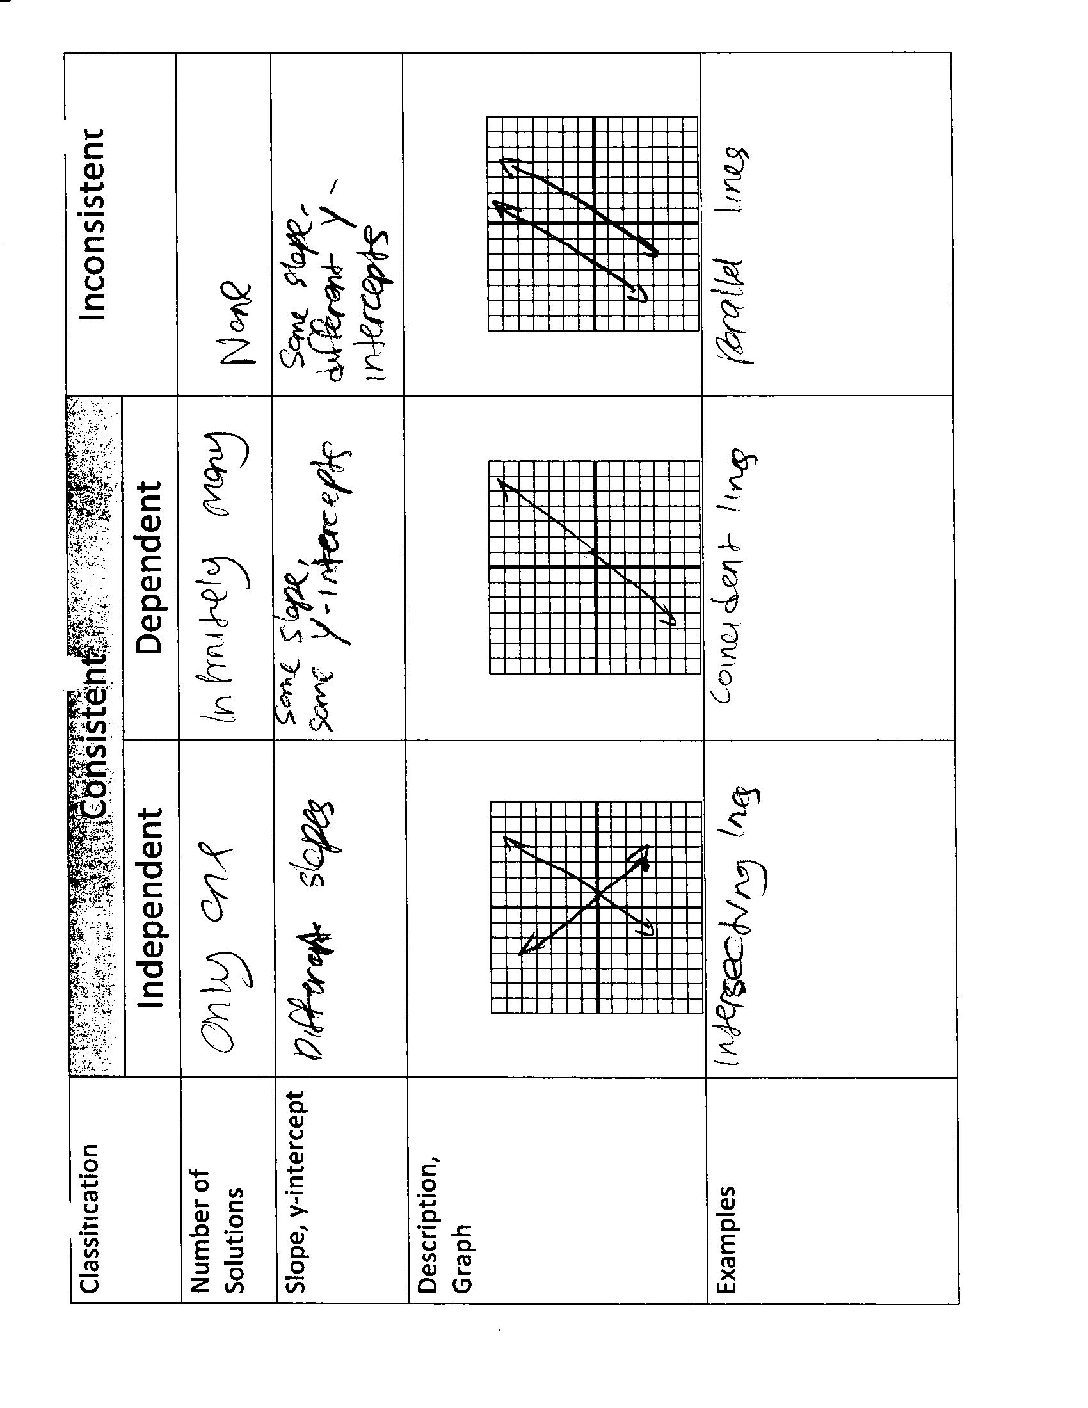 Classification
Consistent
Inconsistent
Independent
Dependent
Number of
Solutions
Only one
Infinitely many
None
Slope, y-intercept
Different slopes
Same slope,
same y-intercepts
Same slope,
different y-
intercepts
Description,
Graph
Examples
Intersecting lines
Coincident lines
Parallel lines